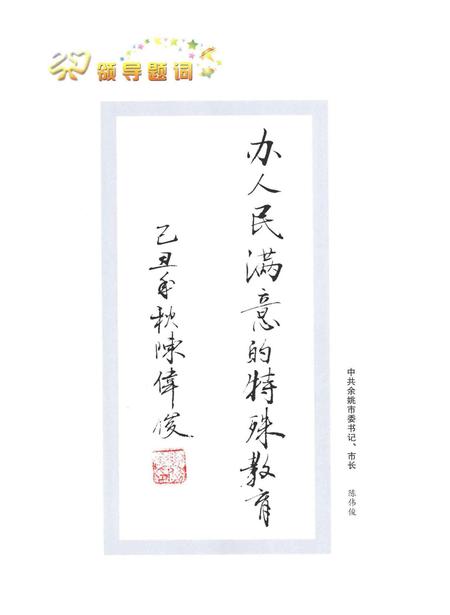 领导题词
办人民满意的特殊教育
己丑年秋陈偉俊
中共余姚市委书记、市长 陈伟俊